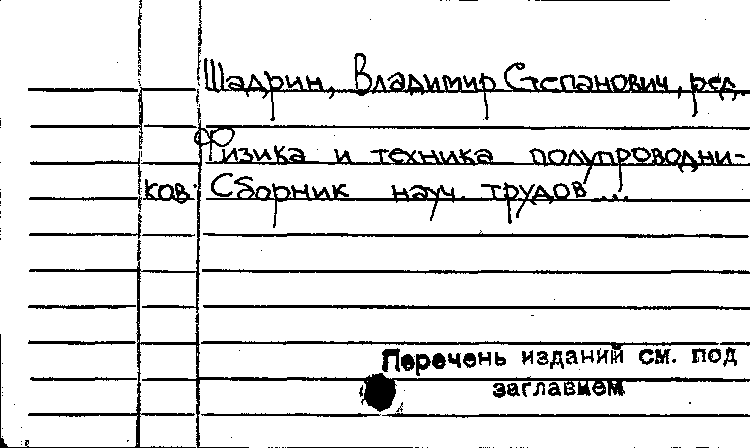 Шадрин, Владимир Степанович, ред.
Физика и техника полупроводни-
ков: Сборник науч. трудов ...
Перечень изданий см. под
заглавием